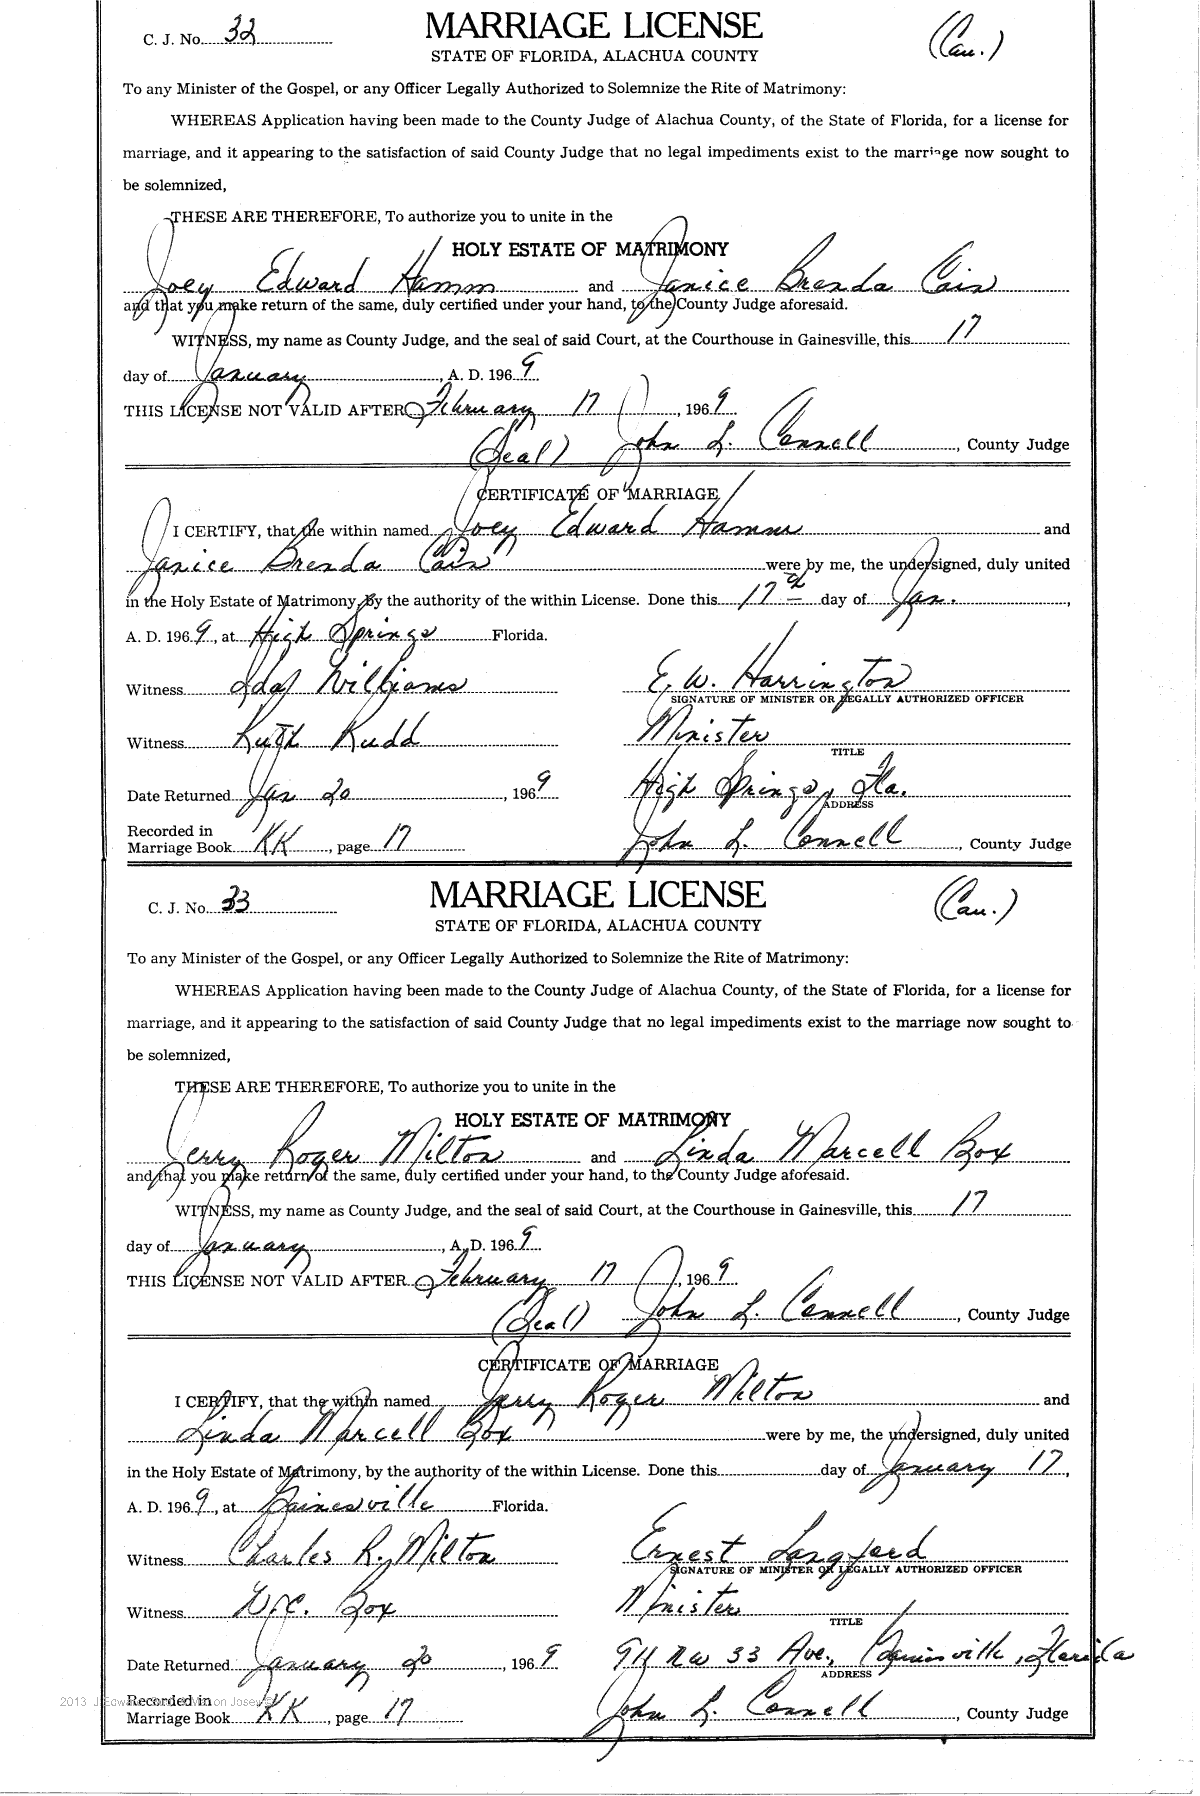 C. J. No. 32 MARRIAGE LICENSE (Cau.)
STATE OF FLORIDA, ALACHUA COUNTY
To any Minister of the Gospel, or any Officer Legally Authorized to Solemnize the Rite of Matrimony:
WHEREAS Application having been made to the County Judge of Alachua County, of the State of Florida, for a license for
marriage, and it appearing to the satisfaction of said County Judge that no legal impediments exist to the marriage now sought to
be solemnized,
THESE ARE THEREFORE, To authorize you to unite in the
HOLY ESTATE OF MATRIMONY
Joey Edward Hamm and Janice Brenda Cain
and that you make return of the same, duly certified under your hand, to the County Judge aforesaid.
WITNESS, my name as County Judge, and the seal of said Court, at the Courthouse in Gainesville, this 17
day of January, A. D. 1969
THIS LICENSE NOT VALID AFTER February 17, 1969
(Seal) John L. Connell, County Judge
CERTIFICATE OF MARRIAGE
I CERTIFY, that the within named Joey Edward Hamm and
Janice Brenda Cain were by me, the undersigned, duly united
in the Holy Estate of Matrimony, by the authority of the within License. Done this 17th day of Jan.,
A. D. 1969, at High Springs Florida.
Witness Ida Williams E. W. Harrington
SIGNATURE OF MINISTER OR LEGALLY AUTHORIZED OFFICER
Witness Ruth Rudd Minister
TITLE
Date Returned Jan 20, 1969 High Springs, Fla.
ADDRESS
Recorded in
Marriage Book KK, page 17 John L. Connell, County Judge
C. J. No. 33 MARRIAGE LICENSE (Cau.)
STATE OF FLORIDA, ALACHUA COUNTY
To any Minister of the Gospel, or any Officer Legally Authorized to Solemnize the Rite of Matrimony:
WHEREAS Application having been made to the County Judge of Alachua County, of the State of Florida, for a license for
marriage, and it appearing to the satisfaction of said County Judge that no legal impediments exist to the marriage now sought to
be solemnized,
THESE ARE THEREFORE, To authorize you to unite in the
HOLY ESTATE OF MATRIMONY
Jerry Roger Milton and Linda Marcell Box
and that you make return of the same, duly certified under your hand, to the County Judge aforesaid.
WITNESS, my name as County Judge, and the seal of said Court, at the Courthouse in Gainesville, this 17
day of January, A. D. 1969
THIS LICENSE NOT VALID AFTER February 17, 1969
(Seal) John L. Connell, County Judge
CERTIFICATE OF MARRIAGE
I CERTIFY, that the within named Jerry Roger Milton and
Linda Marcell Box were by me, the undersigned, duly united
in the Holy Estate of Matrimony, by the authority of the within License. Done this day of January 17,
A. D. 1969, at Gainesville Florida.
Witness Charles R. Milton Ernest Langford
SIGNATURE OF MINISTER OR LEGALLY AUTHORIZED OFFICER
Witness W. C. Box Minister
TITLE
Date Returned January 20, 1969 911 NW 33 Ave., Gainesville, Florida
ADDRESS
2013 Recorded in
Marriage Book KK, page 17 John L. Connell, County Judge